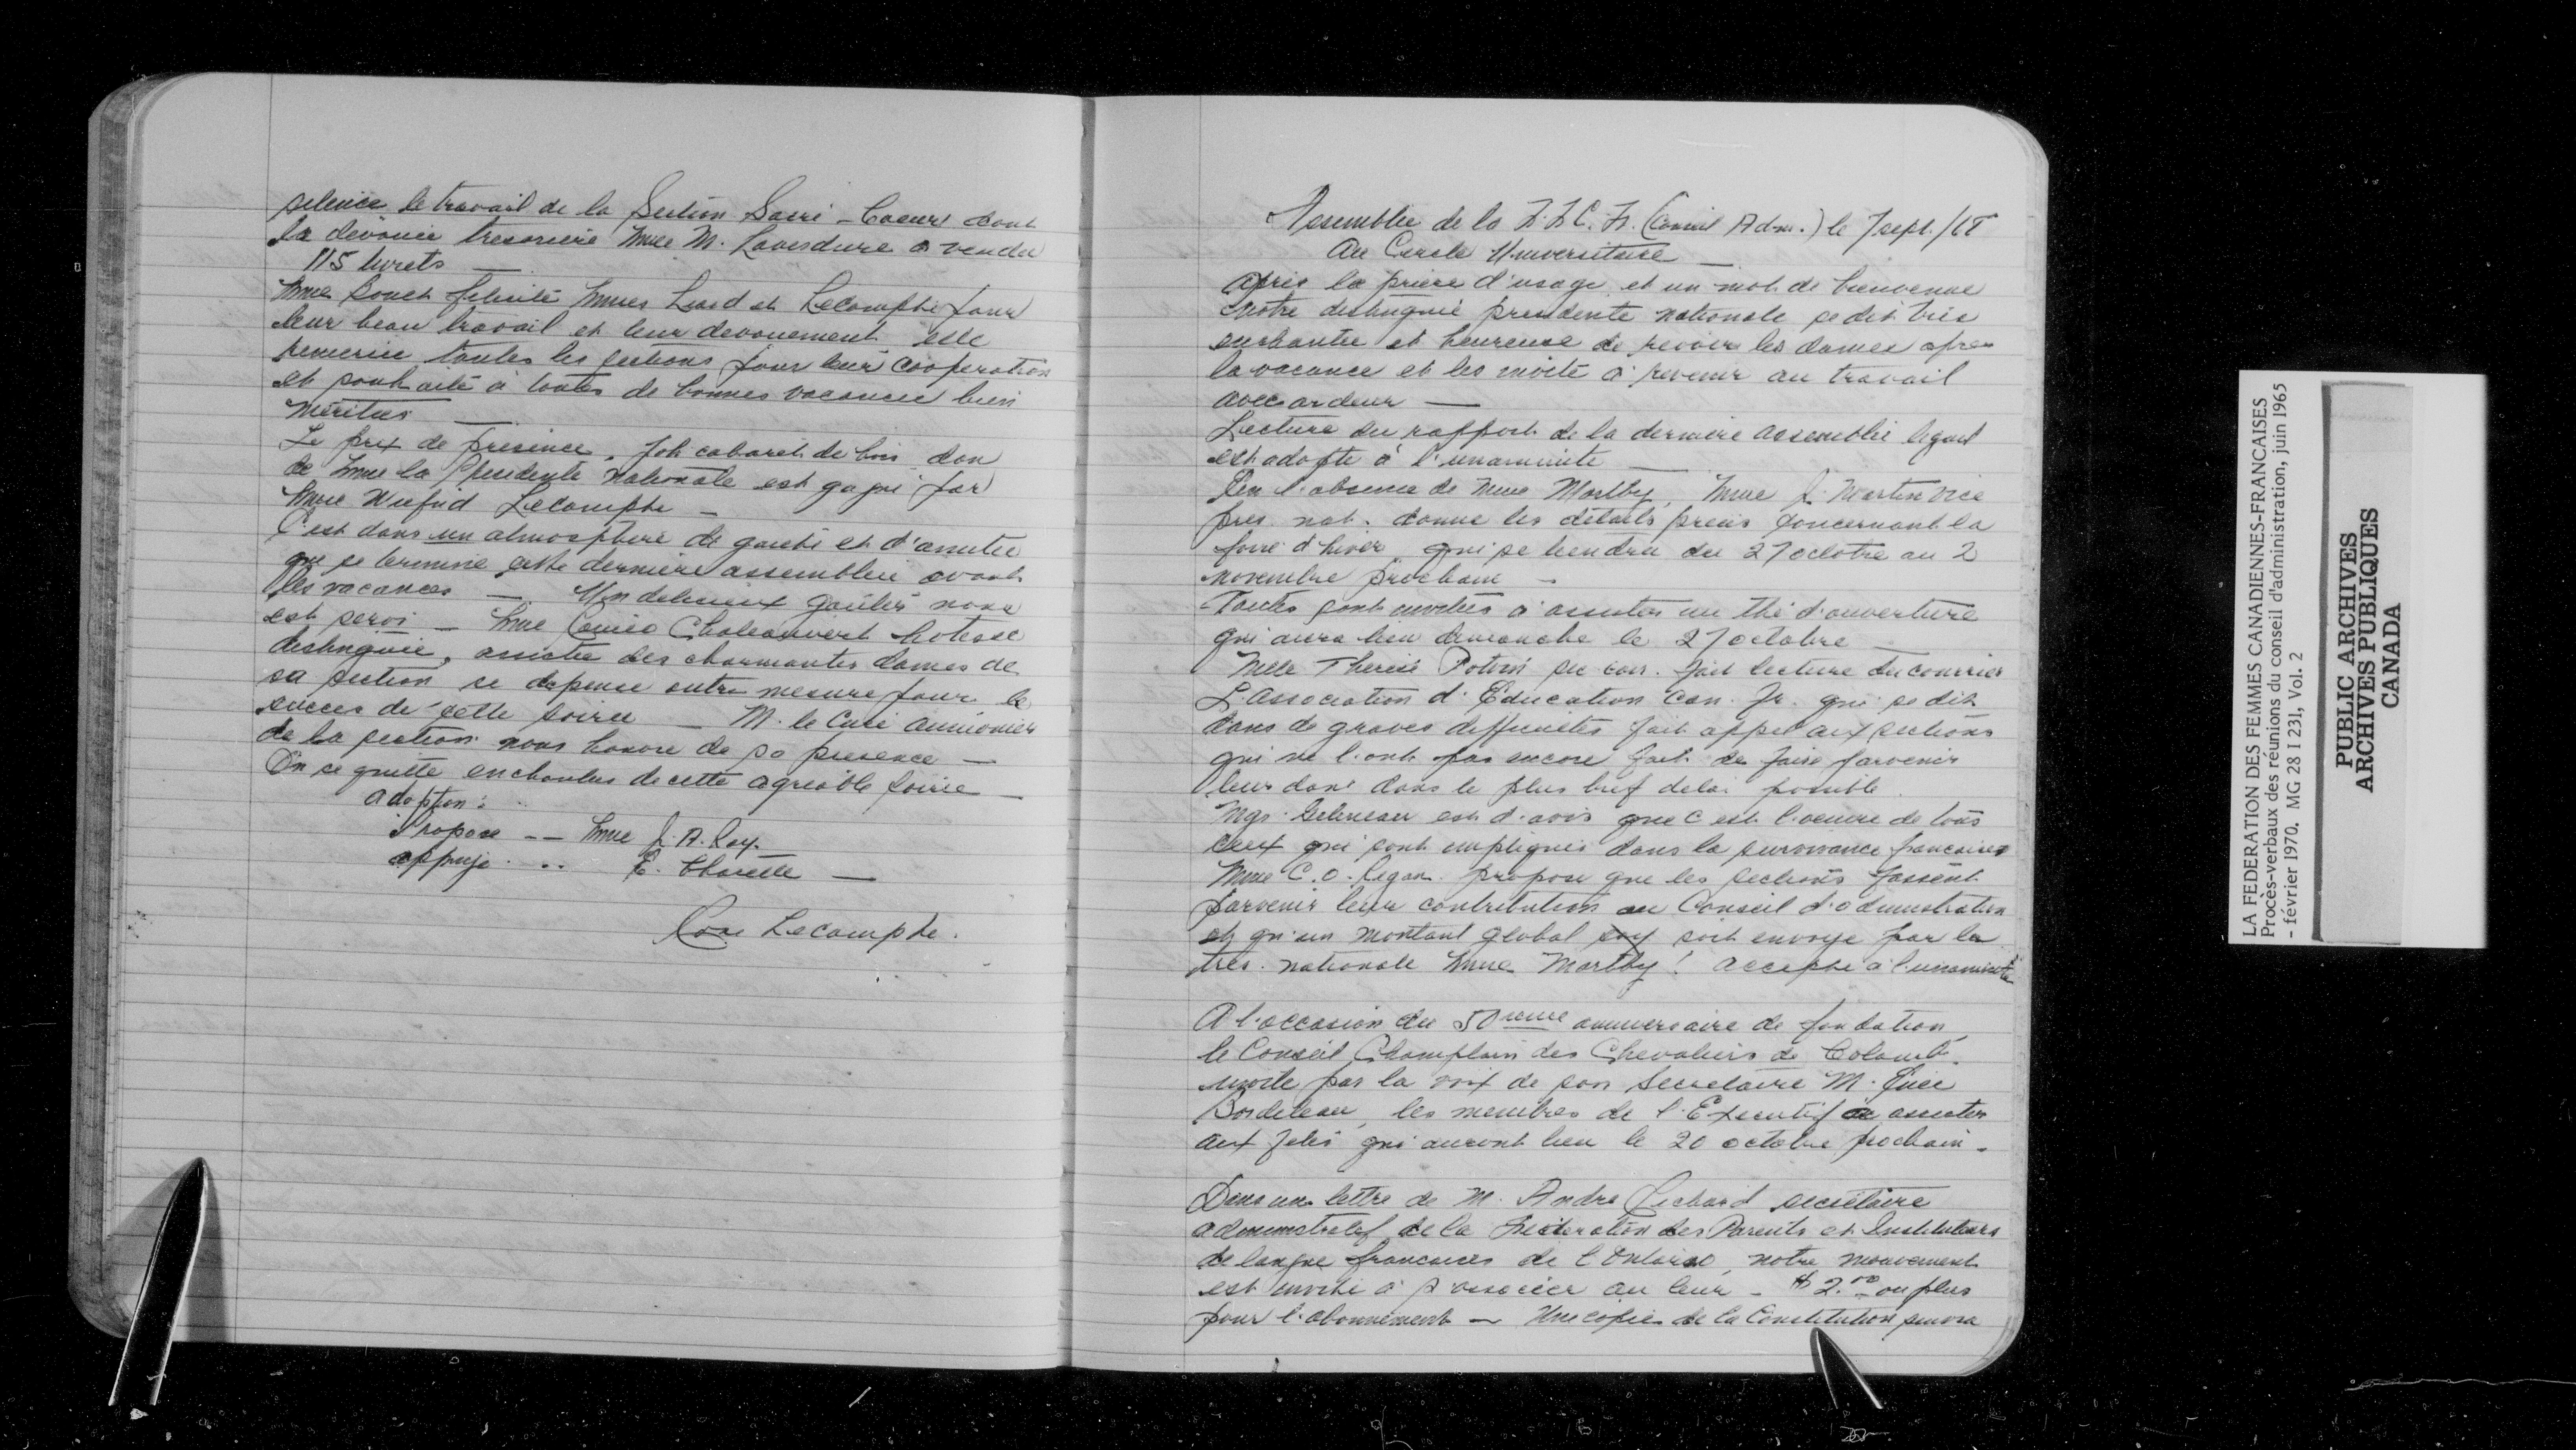 silence le travail de la Section Sacré-Coeur dont
la dévouée trésorière Mme M. Laverdure a vendu
115 livrets —
Mme Bouch félicite Mmes Lard et Lecompte pour
leur beau travail et leur dévouement elle
remercie toutes les sections pour leur coopération
et souhaite à toutes de bonnes vacances bien
méritées —
Le prix de présence, joli cabaret de bois don
de Mme la Présidente Nationale est gagné par
Mme Wilfrid Lecompte —
C'est dans un atmosphère de gaieté et d'amitié
que se termine cette dernière assemblée avant
les vacances — Un délicieux goûter nous
est servi — Mme Chateauvert hotesse
distinguée, assistée des charmantes dames de
sa section se dépense outre mesure pour le
succès de cette soirée — M. le Curé aumonier
de la section nous honore de sa présence —
On se quitte enchantées de cette agréable soirée —
adoption:
Propose -- Mme J. A. Roy.
appuyé .. E. Charette —
Rose Lecompte.
Assemblée de la F.F.C.F. (Conseil Adm.) le 7 sept./65
Au Cercle Universitaire —
Après la prière d'usage et un mot de bienvenue
notre distinguée présidente nationale se dit très
enchantée et heureuse de revoir les dames après
la vacance et les invite à revenir au travail
avec ardeur —
Lecture du rapport de la dernière assemblée lequel
est adopté à l'unanimité —
En l'absence de Mme Maltby, Mme J. Martin vice
prés. nat. donne les détails précis concernant la
foire d'hiver, qui se tiendra du 27 octobre au 2
novembre prochain —
Toutes sont invitées à assister au thé d'ouverture
qui aura lieu dimanche le 27 octobre —
Melle Thérèse Potvin sec cor. fait lecture du courrier
L'Association d'Education Can. Fr. qui se dit
dans de graves difficultés fait appel aux sections
qui ne l'ont pas encore fait de faire parvenir
leur don dans le plus bref délai possible.
Mgr. Gélineau est d'avis que c'est l'oeuvre de tous
ceux qui sont impliqués dans la survivance française
Mme C.O. Régan propose que les sections fassent
parvenir leur contribution au Conseil d'administration
et qu'un montant global soit envoyé par la
trés. nationale Mme Maltby! Accepté à l'unanimité
A l'occasion du 50ième anniversaire de fondation
le Conseil Champlain des Chevaliers de Colomb
invite par la voix de son Secrétaire M.
Bordeleau, les membres de l'Exécutif à assister
aux fêtes qui auront lieu le 20 octobre prochain —
Dans une lettre de M. André Richard secrétaire
administratif de la Fédération des Parents et Instituteurs
de langue française de l'Ontario, notre mouvement
est invité à s'associer au leur — $ 2.00 ou plus
pour l'abonnement — Une copie de la Constitution suivra
LA FEDERATION DES FEMMES CANADIENNES-FRANCAISES
Procès-verbaux des réunions du conseil d'administration, juin 1965
- février 1970. MG 28 I 231, Vol. 2
PUBLIC ARCHIVES
ARCHIVES PUBLIQUES
CANADA